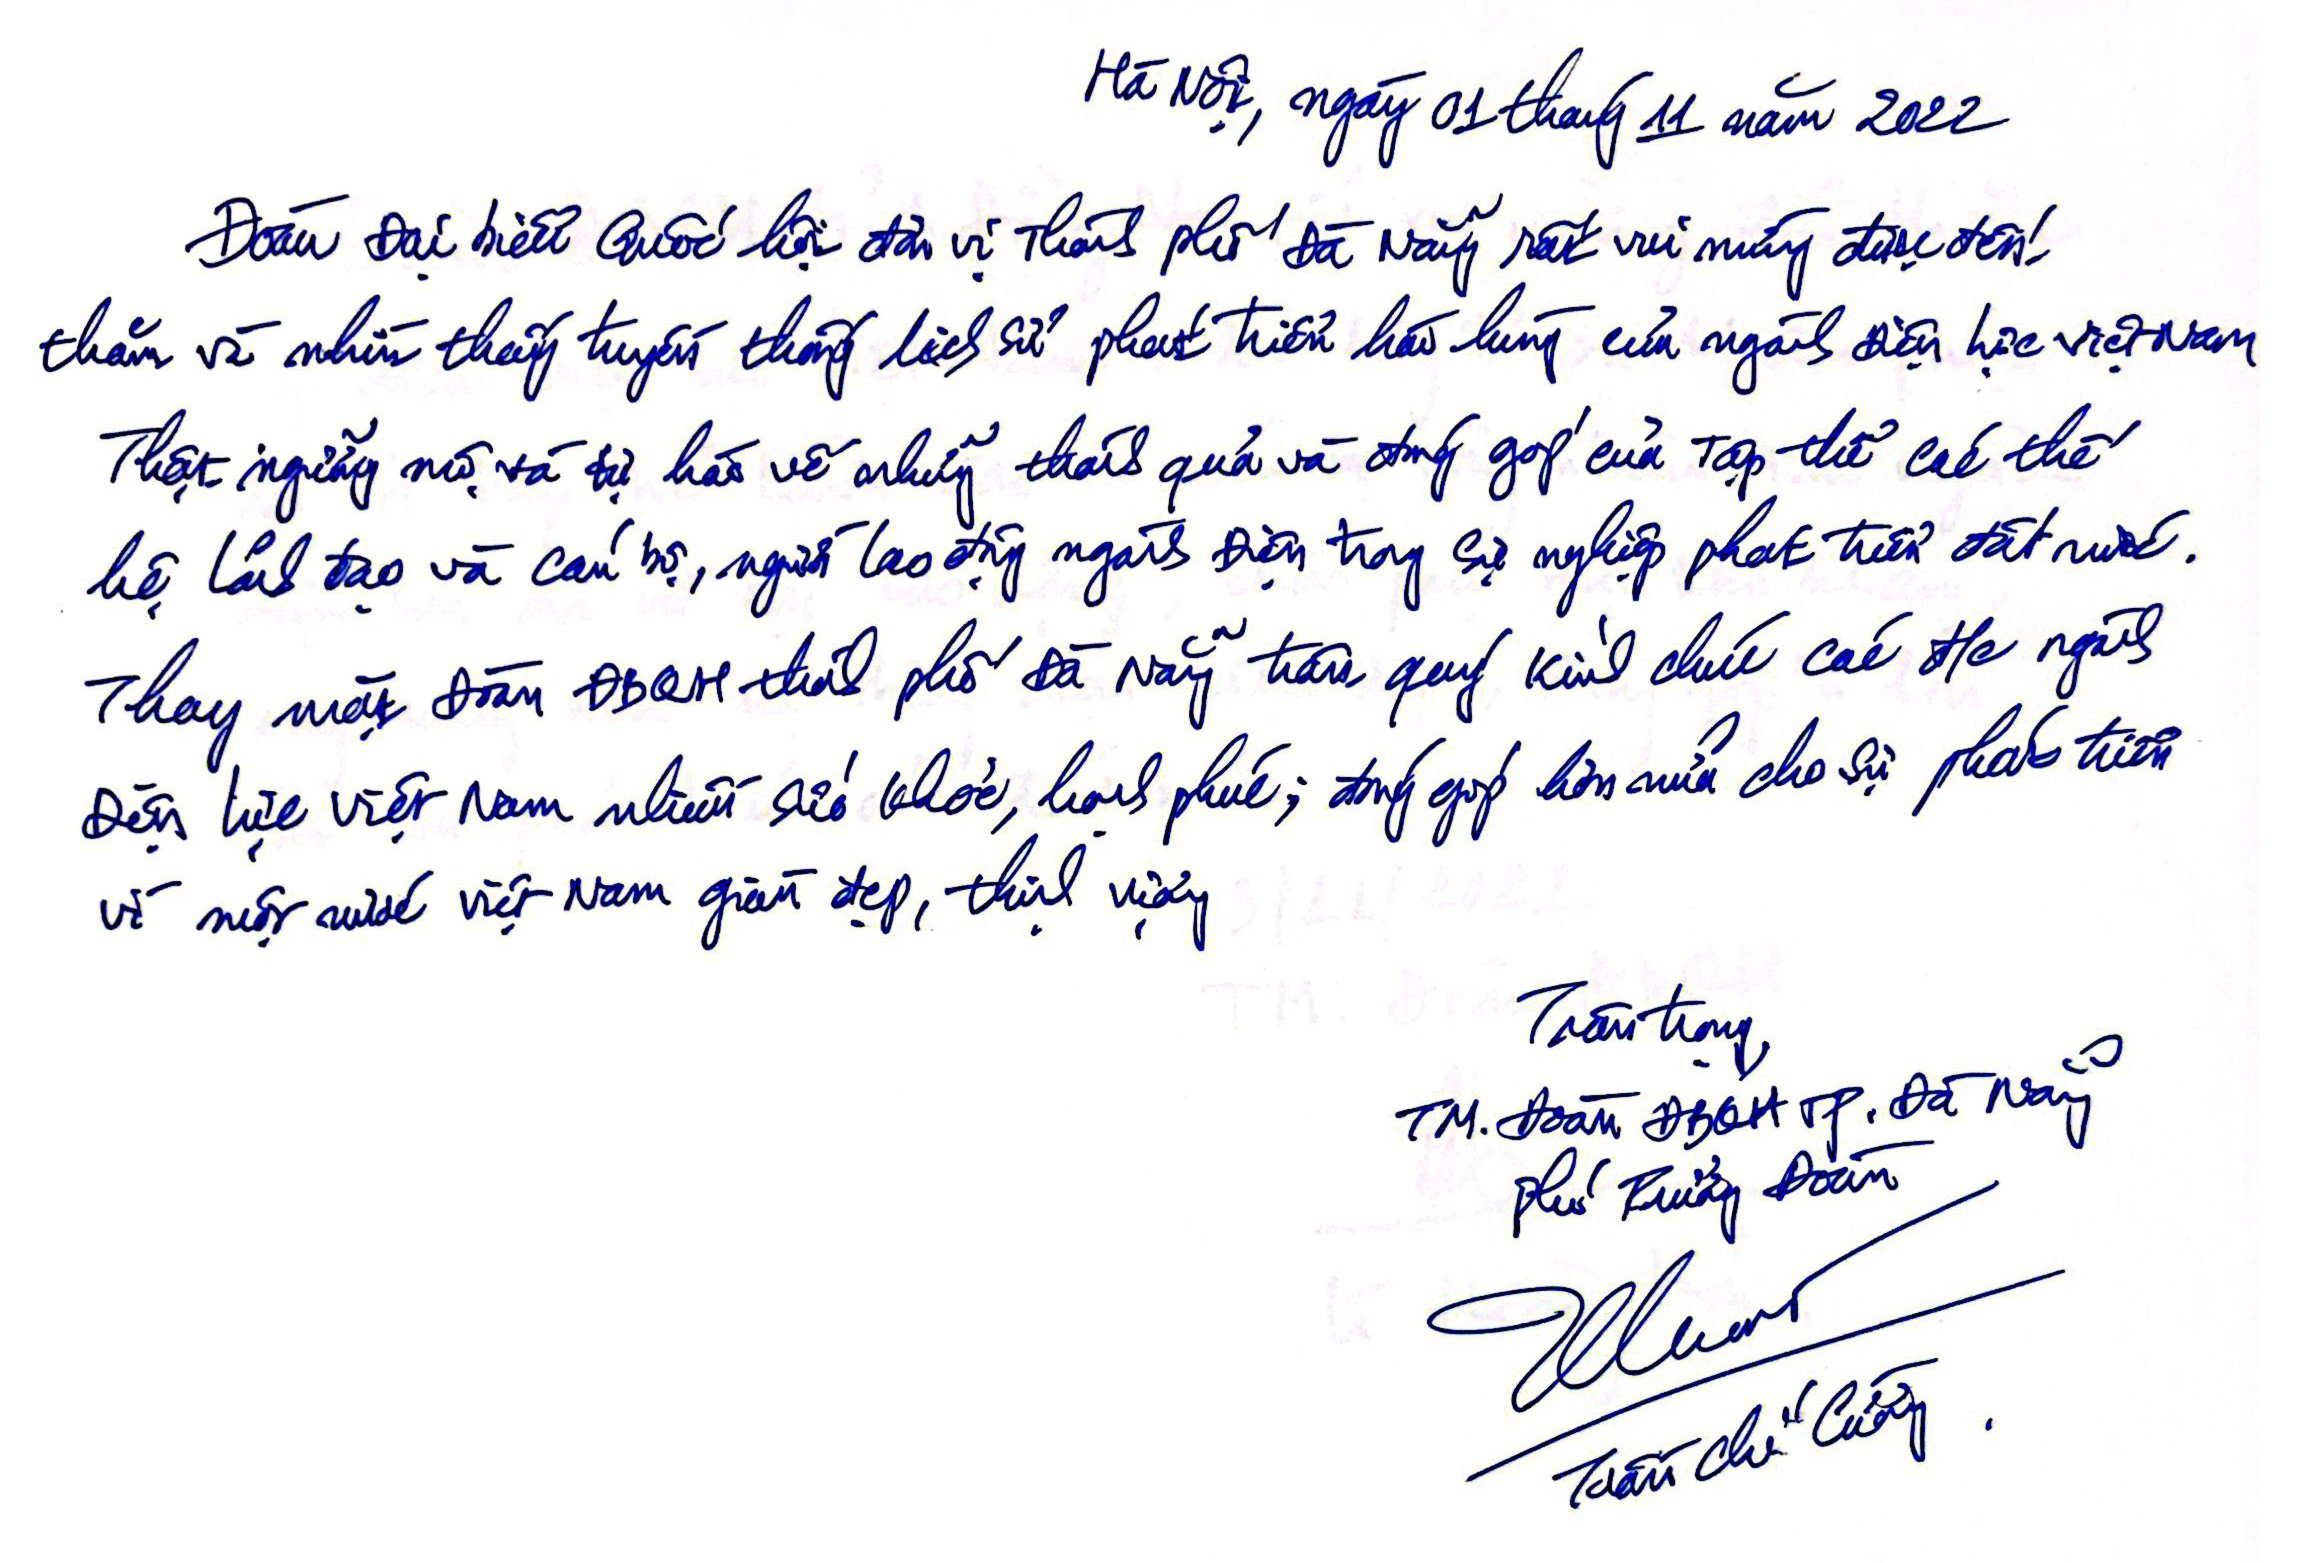 Hà Nội, ngày 01 tháng 11 năm 2022
Đoàn Đại biểu Quốc hội đơn vị Thành phố Đà Nẵng rất vui mừng được đến
thăm và nhìn thấy truyền thống lịch sử phát triển hào hùng của ngành Điện lực Việt Nam
Thật ngưỡng mộ và tự hào về những thành quả và đóng góp của Tập thể các thế
hệ lãnh đạo và cán bộ, người lao động ngành Điện trong sự nghiệp phát triển đất nước.
Thay mặt Đoàn ĐBQH thành phố Đà Nẵng trân quý kính chúc các đ/c ngành
Điện lực Việt Nam nhiều sức khỏe, hạnh phúc; đóng góp hơn nữa cho sự phát triển
vì một nước Việt Nam giàu đẹp, thịnh vượng
Trân trọng,
TM. Đoàn ĐBQH TP. Đà Nẵng
Phó Trưởng Đoàn
Trần Chí Cường.